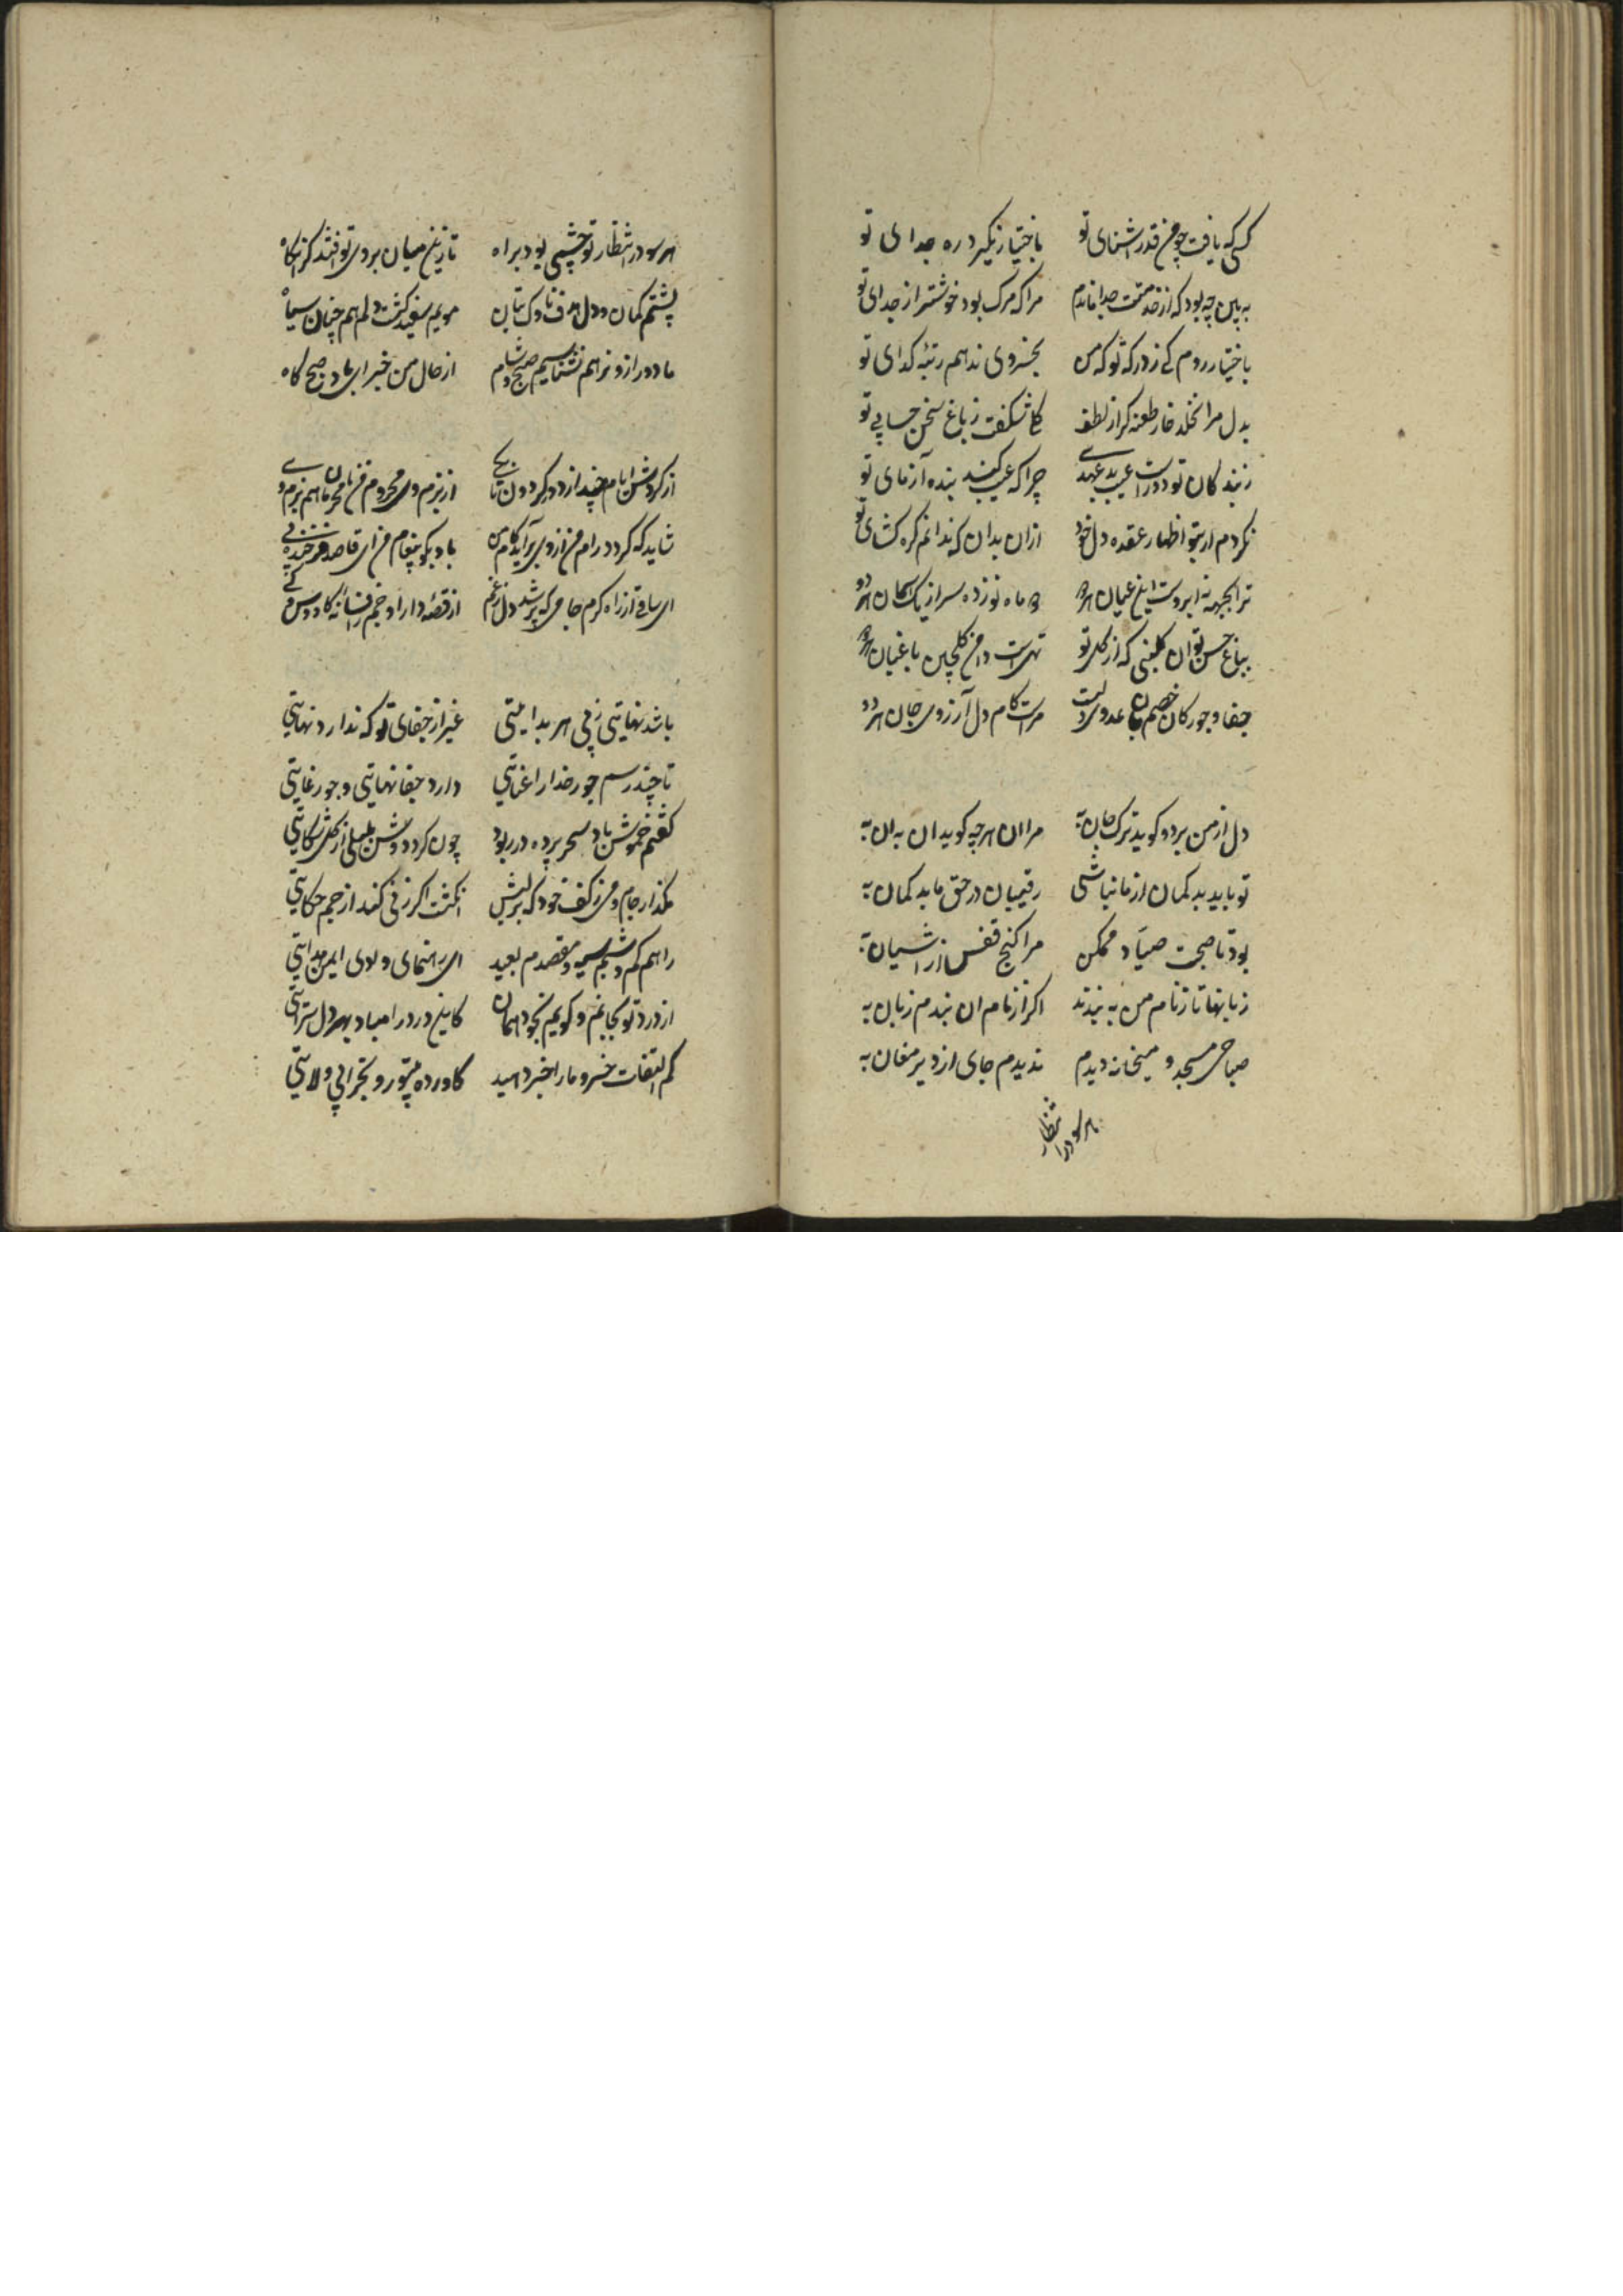 کسی که یافت چو من قدر اشنای تو باختیار نگیرد ره جدای تو
به بین چه بود که از خدمتت جدا ماندم مرا که مرک بود خوشتر از جدای تو
باختیار روم کی ز درکه تو که من بخسروی ندهم رتبه کدای تو
بدل مرا نخلد خار طعنه کر از لطف کلی شکفت ز باغ سخن
ز بندکان تو وراست عیب بد عهدی چرا که عیب کنند بنده آزمای تو
نکردم ار بتو اظهار عقده دل خود ازان بدان که ندانم کره کشای تو
ترا بجبهه نه ابروست این عیان هر دو دو ماه نو زده سر از یک اسمان هر دو
بباغ حسن تو ان کلبنی که از کل تو تهی است دامن کلچین و باغبان هر دو
جفا و جور کان خصم جان عدوی دلست مراست کام دل آرزوی جان هر دو
دل از من برد و کوید ترک جان به مرا ان هرچه کوید ان به ان به
تو باید بد کمان از ما نباشی رقیبان در حق ما بد کمان به
بود تا صحبت صیاد ممکن مرا کنج قفس از اشیان به
زبانها تا ز نام من به بندند اکر از نام ان بندم زبان به
صباحی مسجد و میخانه دیدم ندیدم جای از دیر مغان به
هر سو در انتظار
هر سو در انتظار تو چشمی بود براه تا زین میان بروی تو افتد کرا نکاه
پشتم کمان و دل هدف ناوک بتان مویم سفید کشت و دلم هم چنان سیاه
ما دور ازو نه هم نشناسیم صبح و شام از حال من خبر ای باد صبح کاه
از کردش ایام چند از دور کردون تا بکی از بزم وی محروم من نامحرمان هم بزم وی
شاید که کردد رام من از وی برآید کام من با او بکو پیغام من ای قاصد فرخنده پی
ای ساقی از راه کرم جامی که پر شد دل ز غم از قصه دارا و جم افسانه کاوس و کی
باشد نهایتی ز پی هر بدایتی غیر از جفای تو که ندارد نهایتی
تا چند رسم جور خدا را عنایتی دارد جفا نهایتی و جور غایتی
کفتم خموش باد سحر پرده در بود چون کرد دوش بلبلی از کل شکایتی
مکذار جام می ز کف خود که بر لبش انکشت اکر زنی کند از جم حکایتی
راهم کم و شبم سیه و مقصدم بعید ای رهنمای وادی ایمن هدایتی
از درد تو بجانم و کویم بخود همان کاین درد را مباد بهر دل سرایتی
کم التفات خسرو ما را خبر دهید کاورده